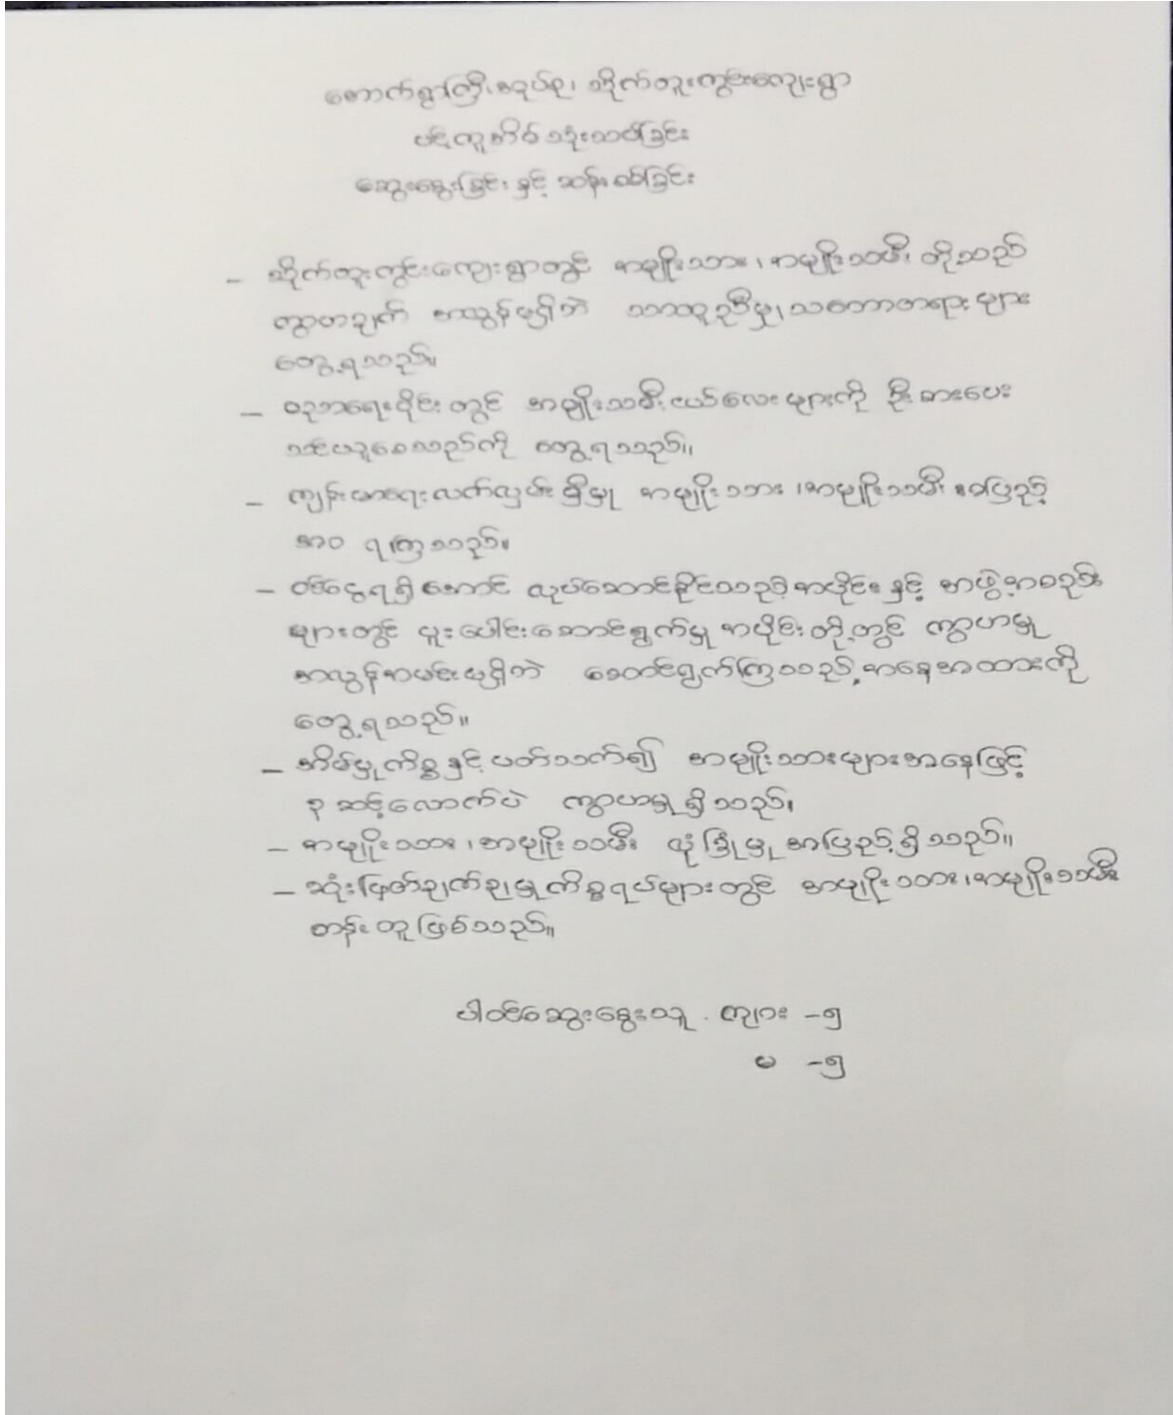 အောက်ရွာကြီးအုပ်စု၊ ဆိုက်တူးကွင်းကျေးရွာ
ပင့်ကူအိမ် သုံးသပ်ခြင်း
ဆွေးနွေးခြင်း နှင့် ဆန်းစစ်ခြင်း
- ဆိုက်တူးကွင်းကျေးရွာတွင် အမျိုးသား၊ အမျိုးသမီး တို့သည်
ကွာတချက် အလွန်မရှိဘဲ သာတူညီမျှ သဘောတရားများ
တွေ့ရသည်။
- ပညာရေးပိုင်းတွင် အမျိုးသမီးငယ်လေးများကို ဦးစားပေး
သင်ယူစေသည်ကို တွေ့ရသည်။
- ကျန်းမာရေးလက်လှမ်းမှီမှု အမျိုးသား၊ အမျိုးသမီး အပြည့်
အဝ ရကြသည်။
- ဝင်ငွေရရှိအောင် လုပ်ဆောင်နိုင်သည့်အပိုင်း နှင့် အဖွဲ့အစည်း
များတွင် ပူးပေါင်းဆောင်ရွက်မှု အပိုင်းတို့တွင် ကွာဟမှု
အလွန်အမင်းမရှိဘဲ ဆောင်ရွက်ကြသည့်အနေအထားကို
တွေ့ရသည်။
- အိမ်မှုကိစ္စနှင့်ပတ်သက်၍ အမျိုးသားများအနေဖြင့်
၃ ဆင့်လောက်ပဲ ကွာဟမှုရှိသည်။
- အမျိုးသား၊ အမျိုးသမီး လုံခြုံမှု အပြည့်ရှိသည်။
- ဆုံးဖြတ်ချက်ချမှုကိစ္စရပ်များတွင် အမျိုးသား၊ အမျိုးသမီး
တန်းတူဖြစ်သည်။
ပါဝင်ဆွေးနွေးသူ ကျား -၅
မ -၅